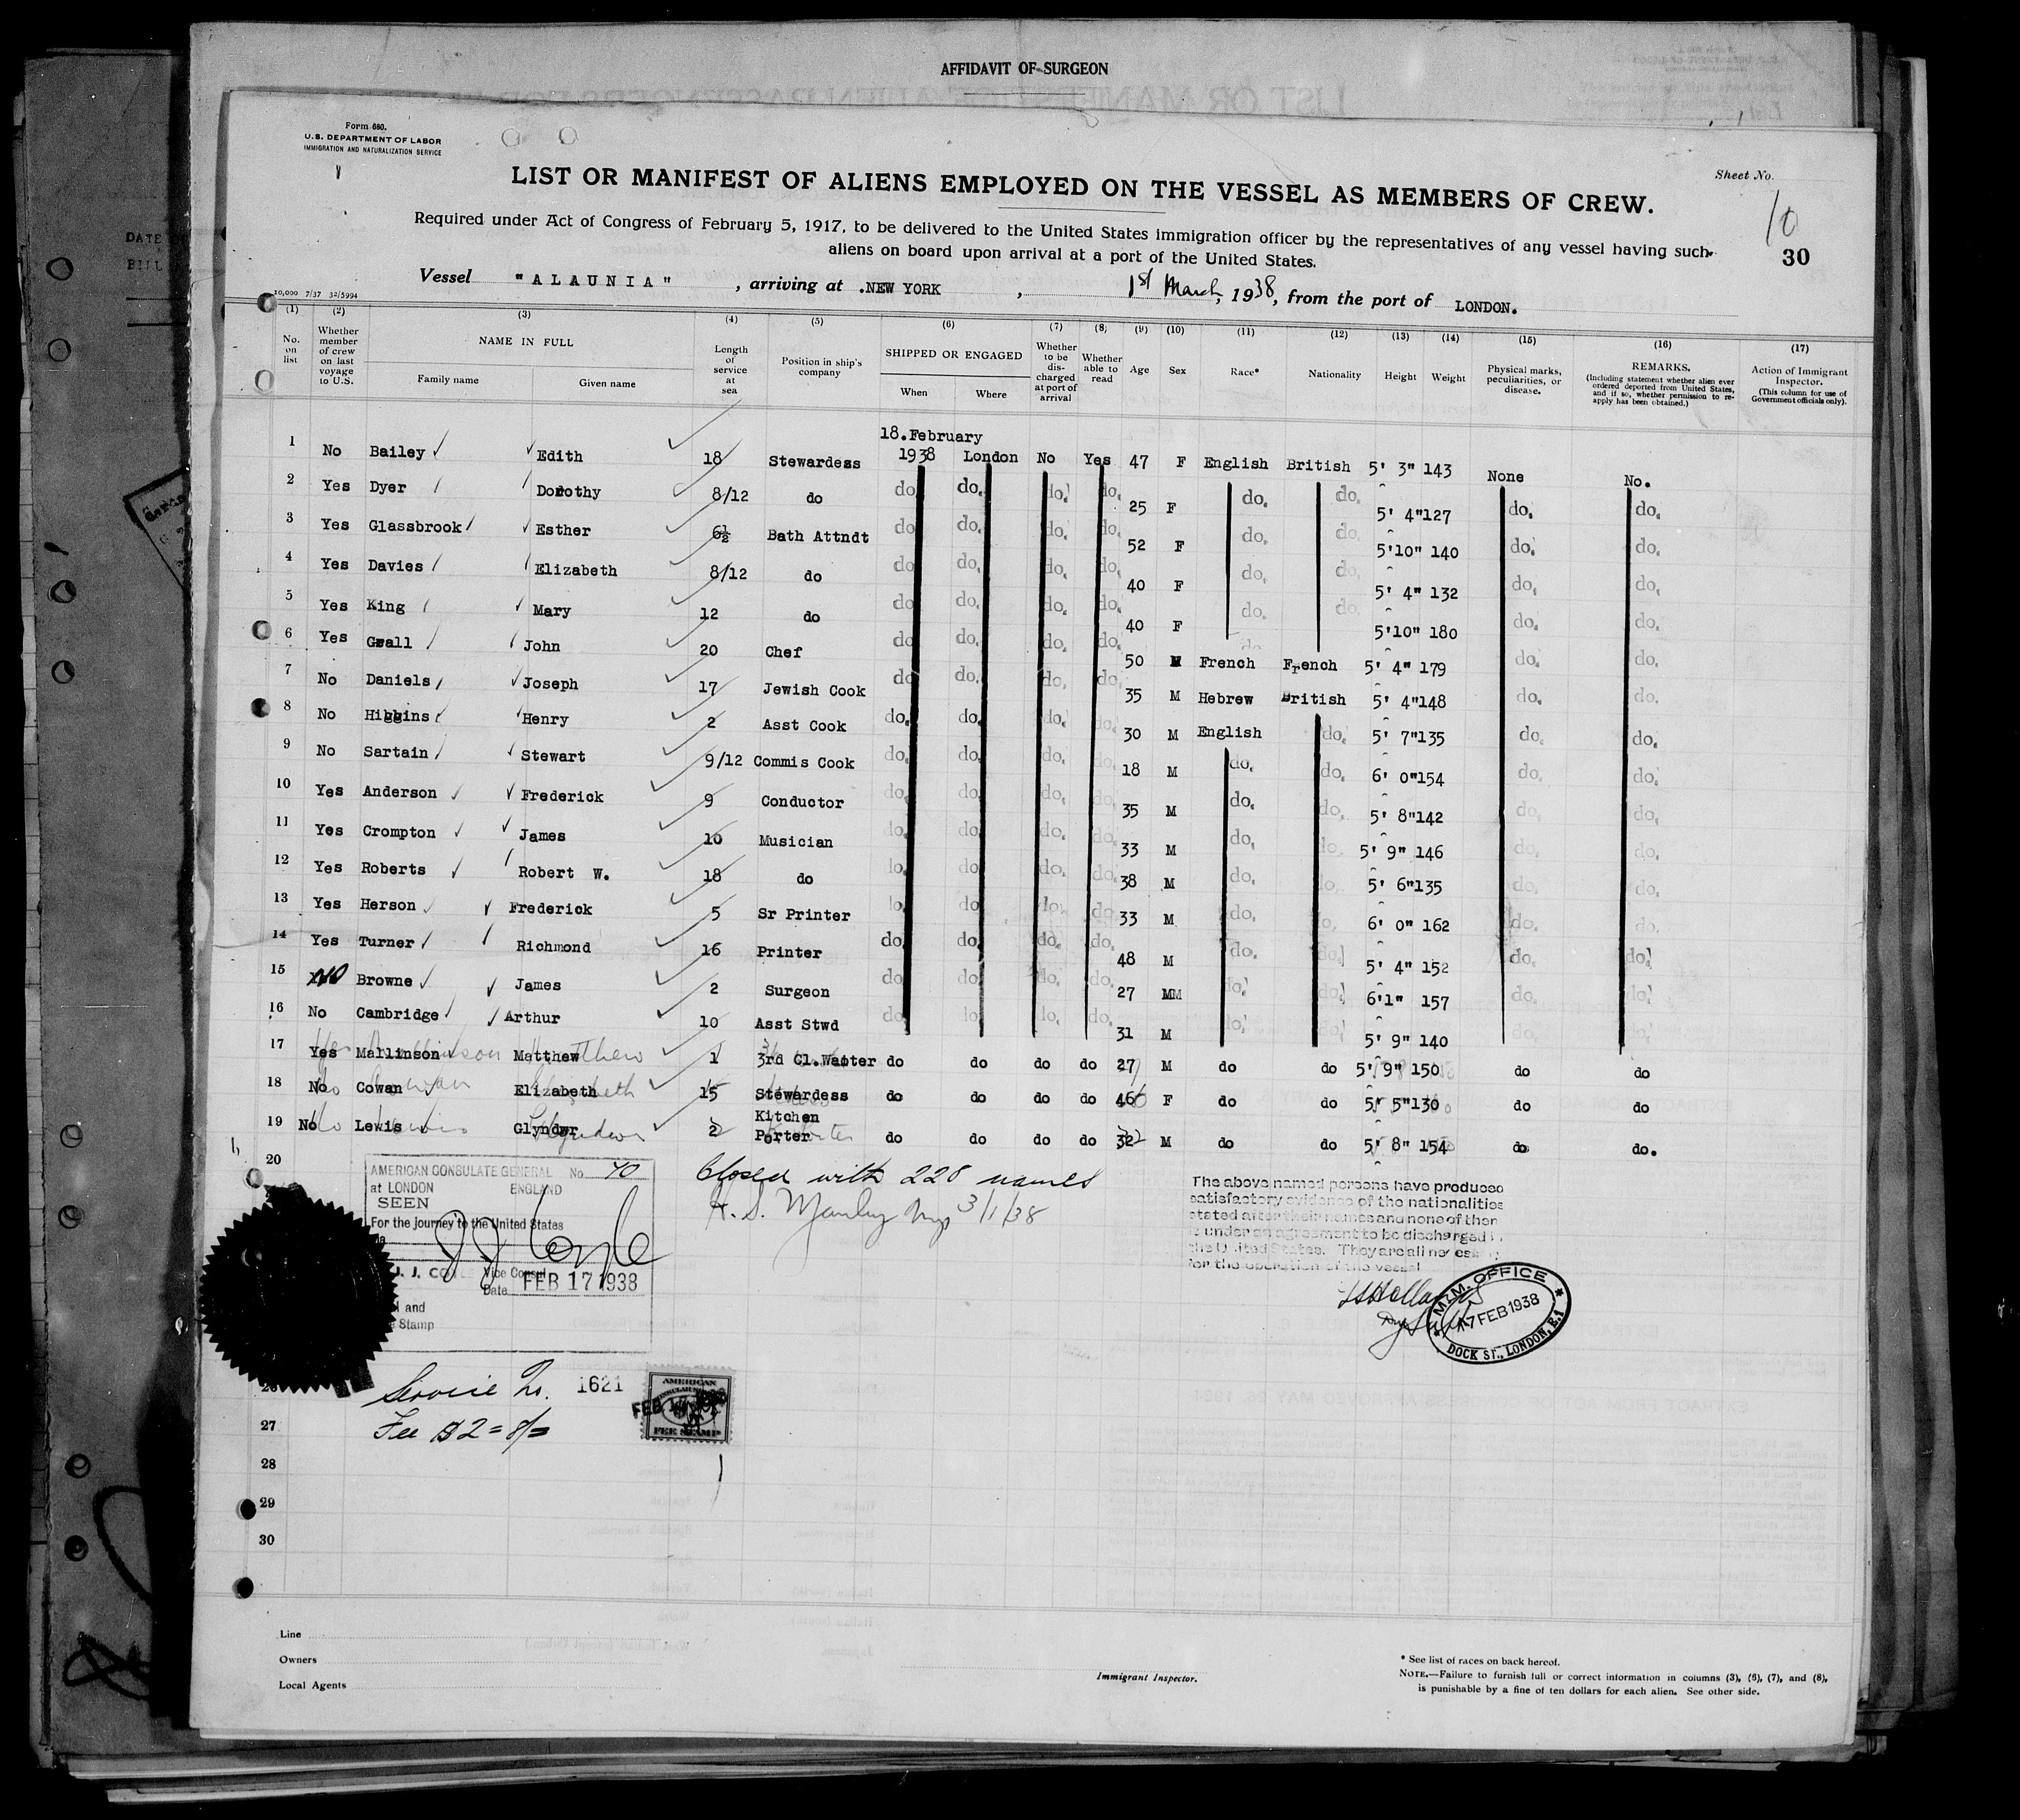 AFFIDAVIT OF SURGEON
Form 680.
U.S. DEPARTMENT OF LABOR
IMMIGRATION AND NATURALIZATION SERVICE
Sheet No.
LIST OR MANIFEST OF ALIENS EMPLOYED ON THE VESSEL AS MEMBERS OF CREW.
10
Required under Act of Congress of February 5, 1917, to be delivered to the United States immigration officer by the representatives of any vessel having such
aliens on board upon arrival at a port of the United States.
30
Vessel "ALAUNIA", arriving at NEW YORK, 1st March, 1938, from the port of LONDON.
10,000 7/37 32/5994
(1) (2) (3) (4) (5) (6) (7) (8) (9) (10) (11) (12) (13) (14) (15) (16) (17)
No. on list
Whether member of crew on last voyage to U.S.
NAME IN FULL
Family name
Given name
Length of service at sea
Position in ship's company
SHIPPED OR ENGAGED
When
Where
Whether to be discharged at port of arrival
Whether able to read
Age
Sex
Race*
Nationality
Height
Weight
Physical marks, peculiarities, or disease.
REMARKS.
(Including statement whether alien ever ordered deported from United States, and if so, whether permission to reapply has been obtained.)
Action of Immigrant Inspector.
(This column for use of Government officials only).
1 No Bailey Edith 18 Stewardess 18.February 1938 London No Yes 47 F English British 5' 3" 143 None No.
2 Yes Dyer Dorothy 8/12 do do. do. do. do. 25 F do. do. 5' 4" 127 do. do.
3 Yes Glassbrook Esther 6½ Bath Attndt do do. do. do. 52 F do. do. 5'10" 140 do. do.
4 Yes Davies Elizabeth 8/12 do do do. do. do. 40 F do. do. 5' 4" 132 do. do.
5 Yes King Mary 12 do do do. do. do. 40 F do. do. 5'10" 180 do. do.
6 Yes Grall John 20 Chef do do. do. do. 50 M French French 5' 4" 179 do. do.
7 No Daniels Joseph 17 Jewish Cook do do. do. do. 35 M Hebrew British 5' 4" 148 do. do.
8 No Higgins Henry 2 Asst Cook do. do. do. do. 30 M English do. 5' 7" 135 do. do.
9 No Sartain Stewart 9/12 Commis Cook do. do. do. do. 18 M do. do. 6' 0" 154 do. do.
10 Yes Anderson Frederick 9 Conductor do. do. do. do. 35 M do. do. 5' 8" 142 do. do.
11 Yes Crompton James 10 Musician do. do. do. do. 33 M do. do. 5' 9" 146 do. do.
12 Yes Roberts Robert W. 18 do do. do do. do. 38 M do. do. 5' 6" 135 do. do.
13 Yes Herson Frederick 5 Sr Printer do. do do. do. 33 M do. do. 6' 0" 162 do. do.
14 Yes Turner Richmond 16 Printer do. do. do. do. 48 M do. do. 5' 4" 152 do. do.
15 NO Browne James 2 Surgeon do do. do. do. 27 M do. do. 6'1" 157 do. do.
16 No Cambridge Arthur 10 Asst Stwd do. do. do. do. 31 M do. do. 5' 9" 140 do. do.
17 Yes Mallinson Matthew 1 3rd Cl.Waiter do do do do 27 M do do 5' 9" 150 do do
18 No Cowan Elizabeth 15 Stewardess do do do do 46 F do do 5' 5" 130 do do
19 No Lewis Glyndwr 2 Kitchen Porter do do do do 32 M do do 5' 8" 154 do do.
20
Closed with 228 names
3/1/38
AMERICAN CONSULATE GENERAL No. 70
at LONDON ENGLAND
SEEN
For the journey to the United States
J. J. Coyle
Vice Consul
Date FEB 17 1938
and
Stamp
The above named persons have produced
satisfactory evidence of the nationalities
stated after their names and none of them
is under an agreement to be discharged in
the United States. They are all necessary
for the operation of the vessel
M.M. OFFICE
17 FEB 1938
DOCK ST., LONDON, E.1
Service No. 1621
Fee $2 = 8/=
AMERICAN
CONSULAR
FEE STAMP
27
28
29
30
Line
Owners
Local Agents
Immigrant Inspector.
* See list of races on back hereof.
NOTE.—Failure to furnish full or correct information in columns (3), (6), (7), and (8),
is punishable by a fine of ten dollars for each alien. See other side.